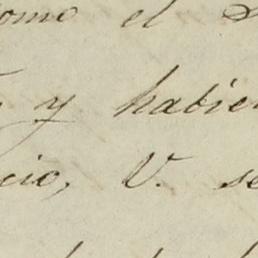 como el
y habien
cio, V. se